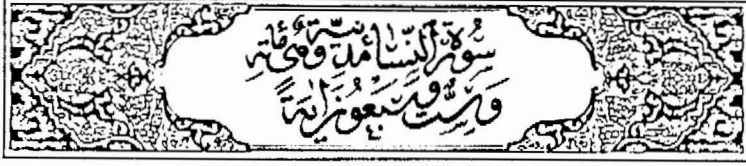 سُورَةُ النِّسَاءِ مَدَنِيَّةٌ وَمِئَةٌ
وَسِتٌّ وَسَبْعُونَ آيَةً